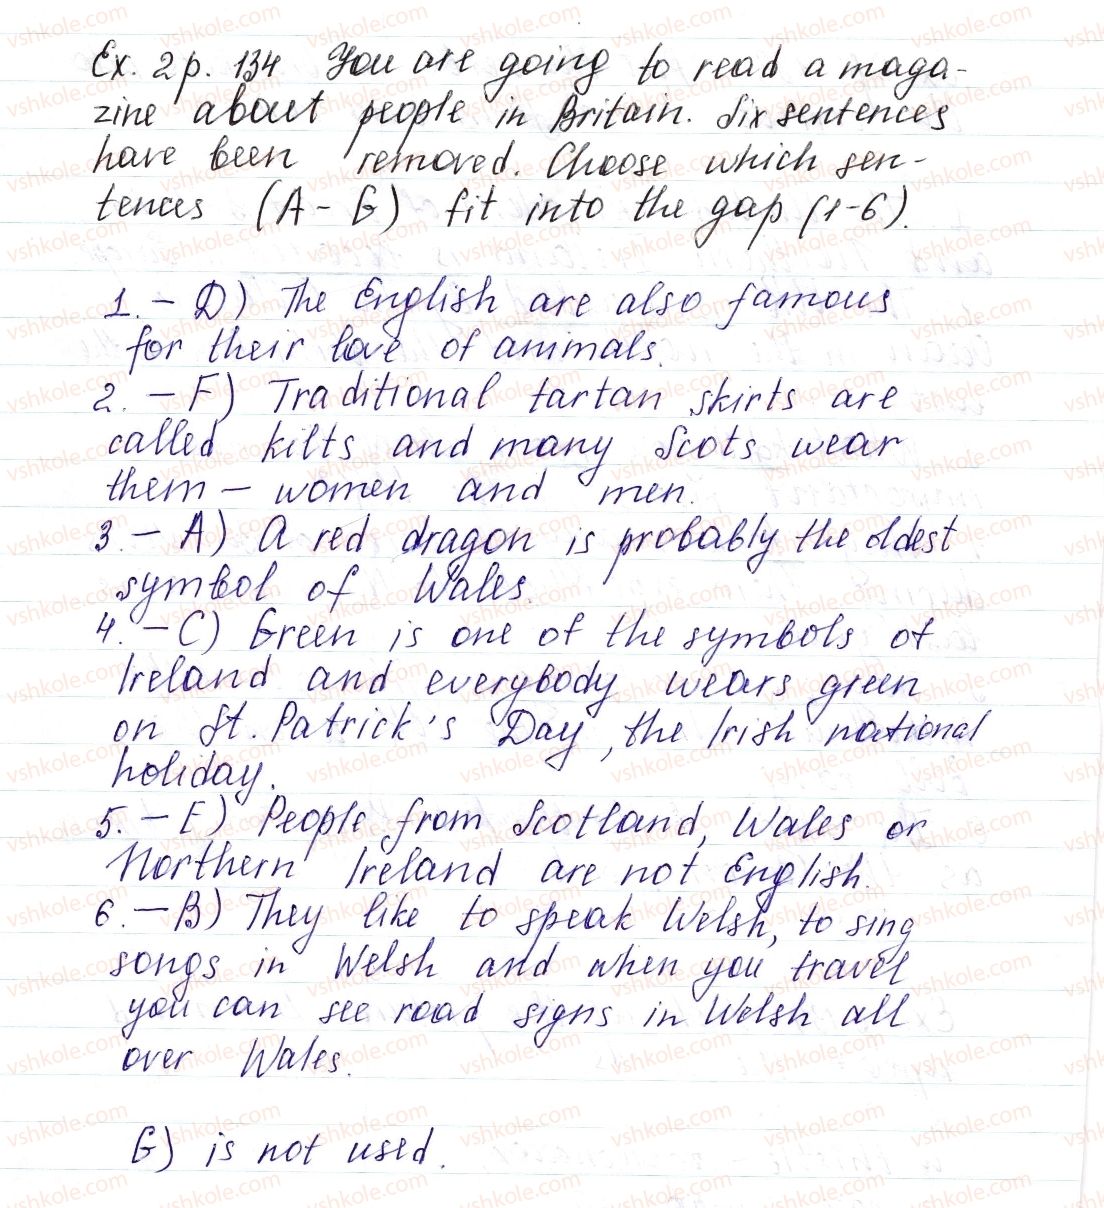 Ex. 2 p. 134 You are going to read a maga-
zine about people in Britain. Six sentences
have been removed. Choose which sen-
tences (A - G) fit into the gap (1-6).
1. - D) The English are also famous
for their love of animals.
2. - F) Traditional tartan skirts are
called kilts and many Scots wear
them - women and men.
3. - A) A red dragon is probably the oldest
symbol of Wales.
4. - C) Green is one of the symbols of
Ireland and everybody wears green
on St. Patrick's Day, the Irish national
holiday.
5. - E) People from Scotland, Wales or
Northern Ireland are not English.
6. - B) They like to speak Welsh, to sing
songs in Welsh and when you travel
you can see road signs in Welsh all
over Wales.
G) is not used.
vshkole.com